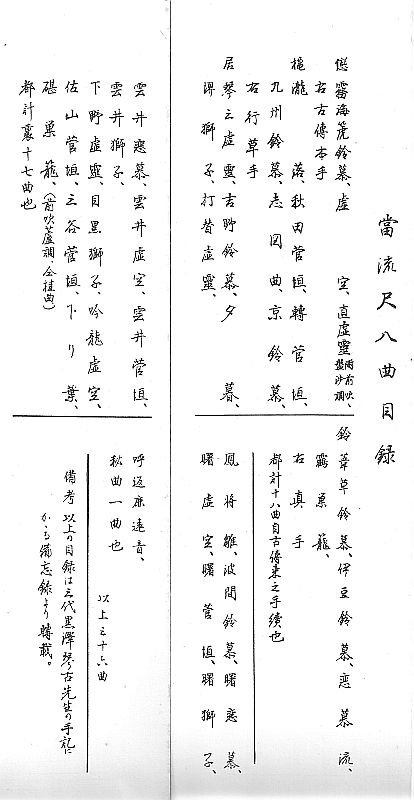 當流尺八曲目録
霧海箎鈴慕、虚空、直虚靈 兩前吹、盤渉調、
右古傳本手
瀧落、秋田菅垣、轉菅垣、
九州鈴慕、志図曲、京鈴慕、
右行草手
琴之虚靈、吉野鈴慕、夕暮、
獅子、打替虚靈、
鈴慕、伊豆鈴慕、恋慕流、
巣龍、
右真手
都計十八曲自古傳来之手續也
鳳将雛、波間鈴慕、曙恋慕、
曙虚空、曙菅垣、曙獅子、
雲井恋慕、雲井虚空、雲井菅垣、
雲井獅子、
下野虚靈、目黒獅子、吟龍虚空、
佐山菅垣、三谷菅垣、下り葉、
碪巣龍、(前吹蘆調、仝挂曲)
都計裏十七曲也
呼返鹿遠音、
秘曲一曲也
以上三十六曲
備考 以上の目録は三代黒澤琴古先生の手記に
かゝる備忘録より轉載。